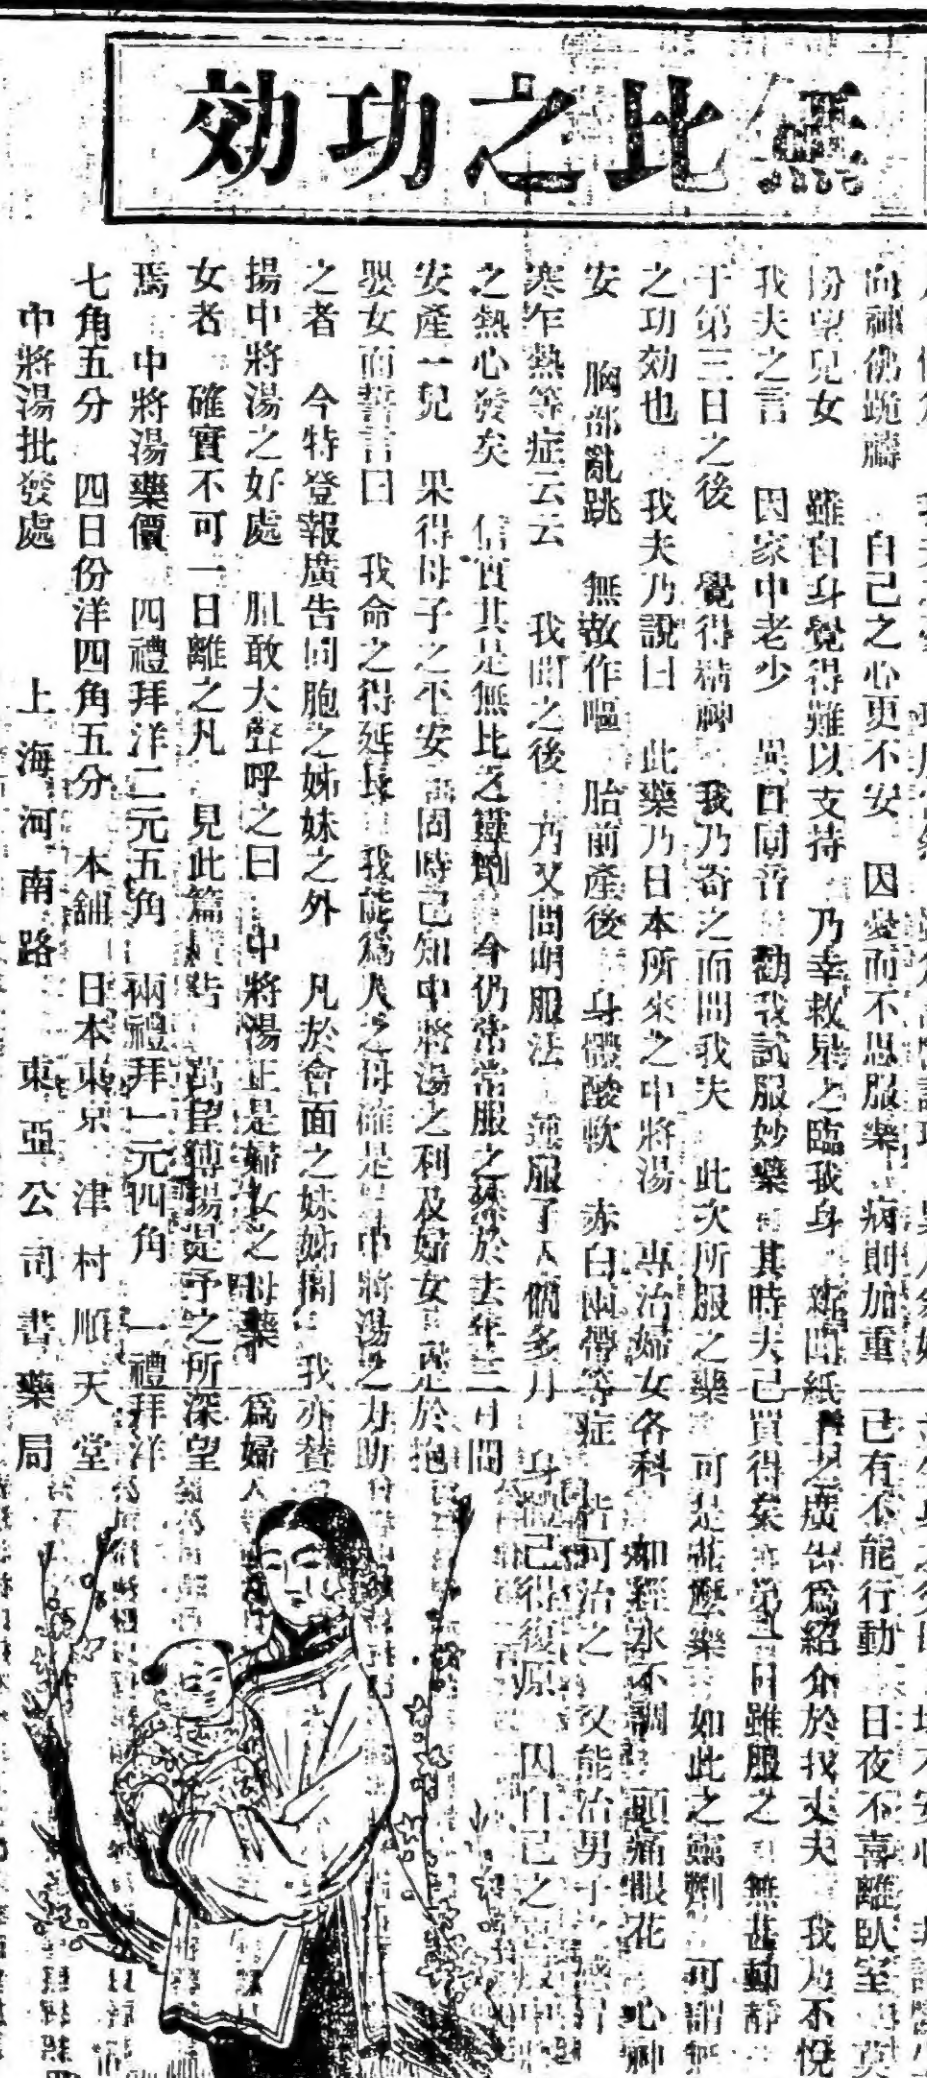 無比之功効
向神彿跪禱 自己之心更不安 因憂而不思服藥 病則加重 已有不能行動 日夜不喜離臥室
盼望兒女 雖自身覺得難以支持 乃幸救星之臨我身 新聞紙上之廣告爲紹介於我丈夫 我乃不悅
我夫之言 因家中老少 異口同音 勸我試服妙藥 其時夫已買得矣 第一日雖服之 無甚動靜
于第三日之後 覺得精神 我乃奇之而問我夫 此次所服之藥 可是甚麼藥 如此之靈劑 可謂無
之功効也 我夫乃說曰 此藥乃日本所來之中將湯 專治婦女各科 如經水不調 頭痛眼花 心神
安 胸部亂跳 無故作嘔 胎前產後 身體酸軟 赤白兩帶等症 皆可治之 又能治男子
寒乍熱等症云云 我聞之後 乃又問明服法 連服了人個多月 身體已得復原 因自己之
之熱心發矣 信實其是無比之靈劑 今仍常常服之 於去年三月間
安產一兒 果得母子之平安 同時已知中將湯之利及婦女 於抱
嬰女而誓言曰 我命之得延長 我能爲人之母確是 中將湯之力助
之者 今特登報廣告同胞之姊妹之外 凡於會面之妹姊間 我亦贊
揚中將湯之好處 胆敢大聲呼之曰 中將湯正是婦女之母藥 爲婦
女者 確實不可一日離之凡 見此篇廣告 萬望傳揚是予之所深望
焉 中將湯藥價 四禮拜洋二元五角 兩禮拜一元四角 一禮拜洋
七角五分 四日份洋四角五分 本舖 日本東京 津村順天堂
中將湯批發處 上海河南路 東亞公司書藥局